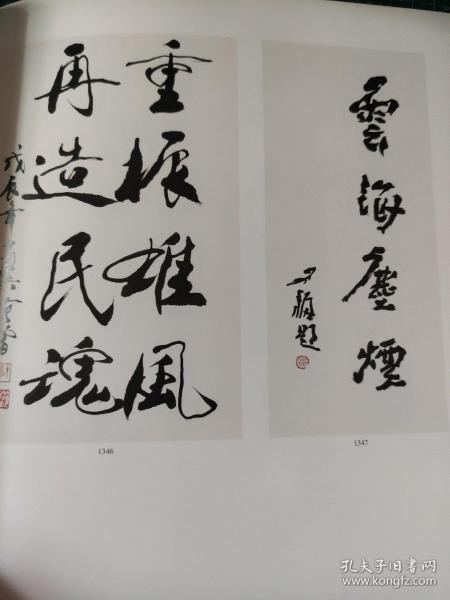 重振雄風
再造民魂
戊辰年
1346
雲海塵煙
題
1347
孔夫子旧书网
www.kongfz.com